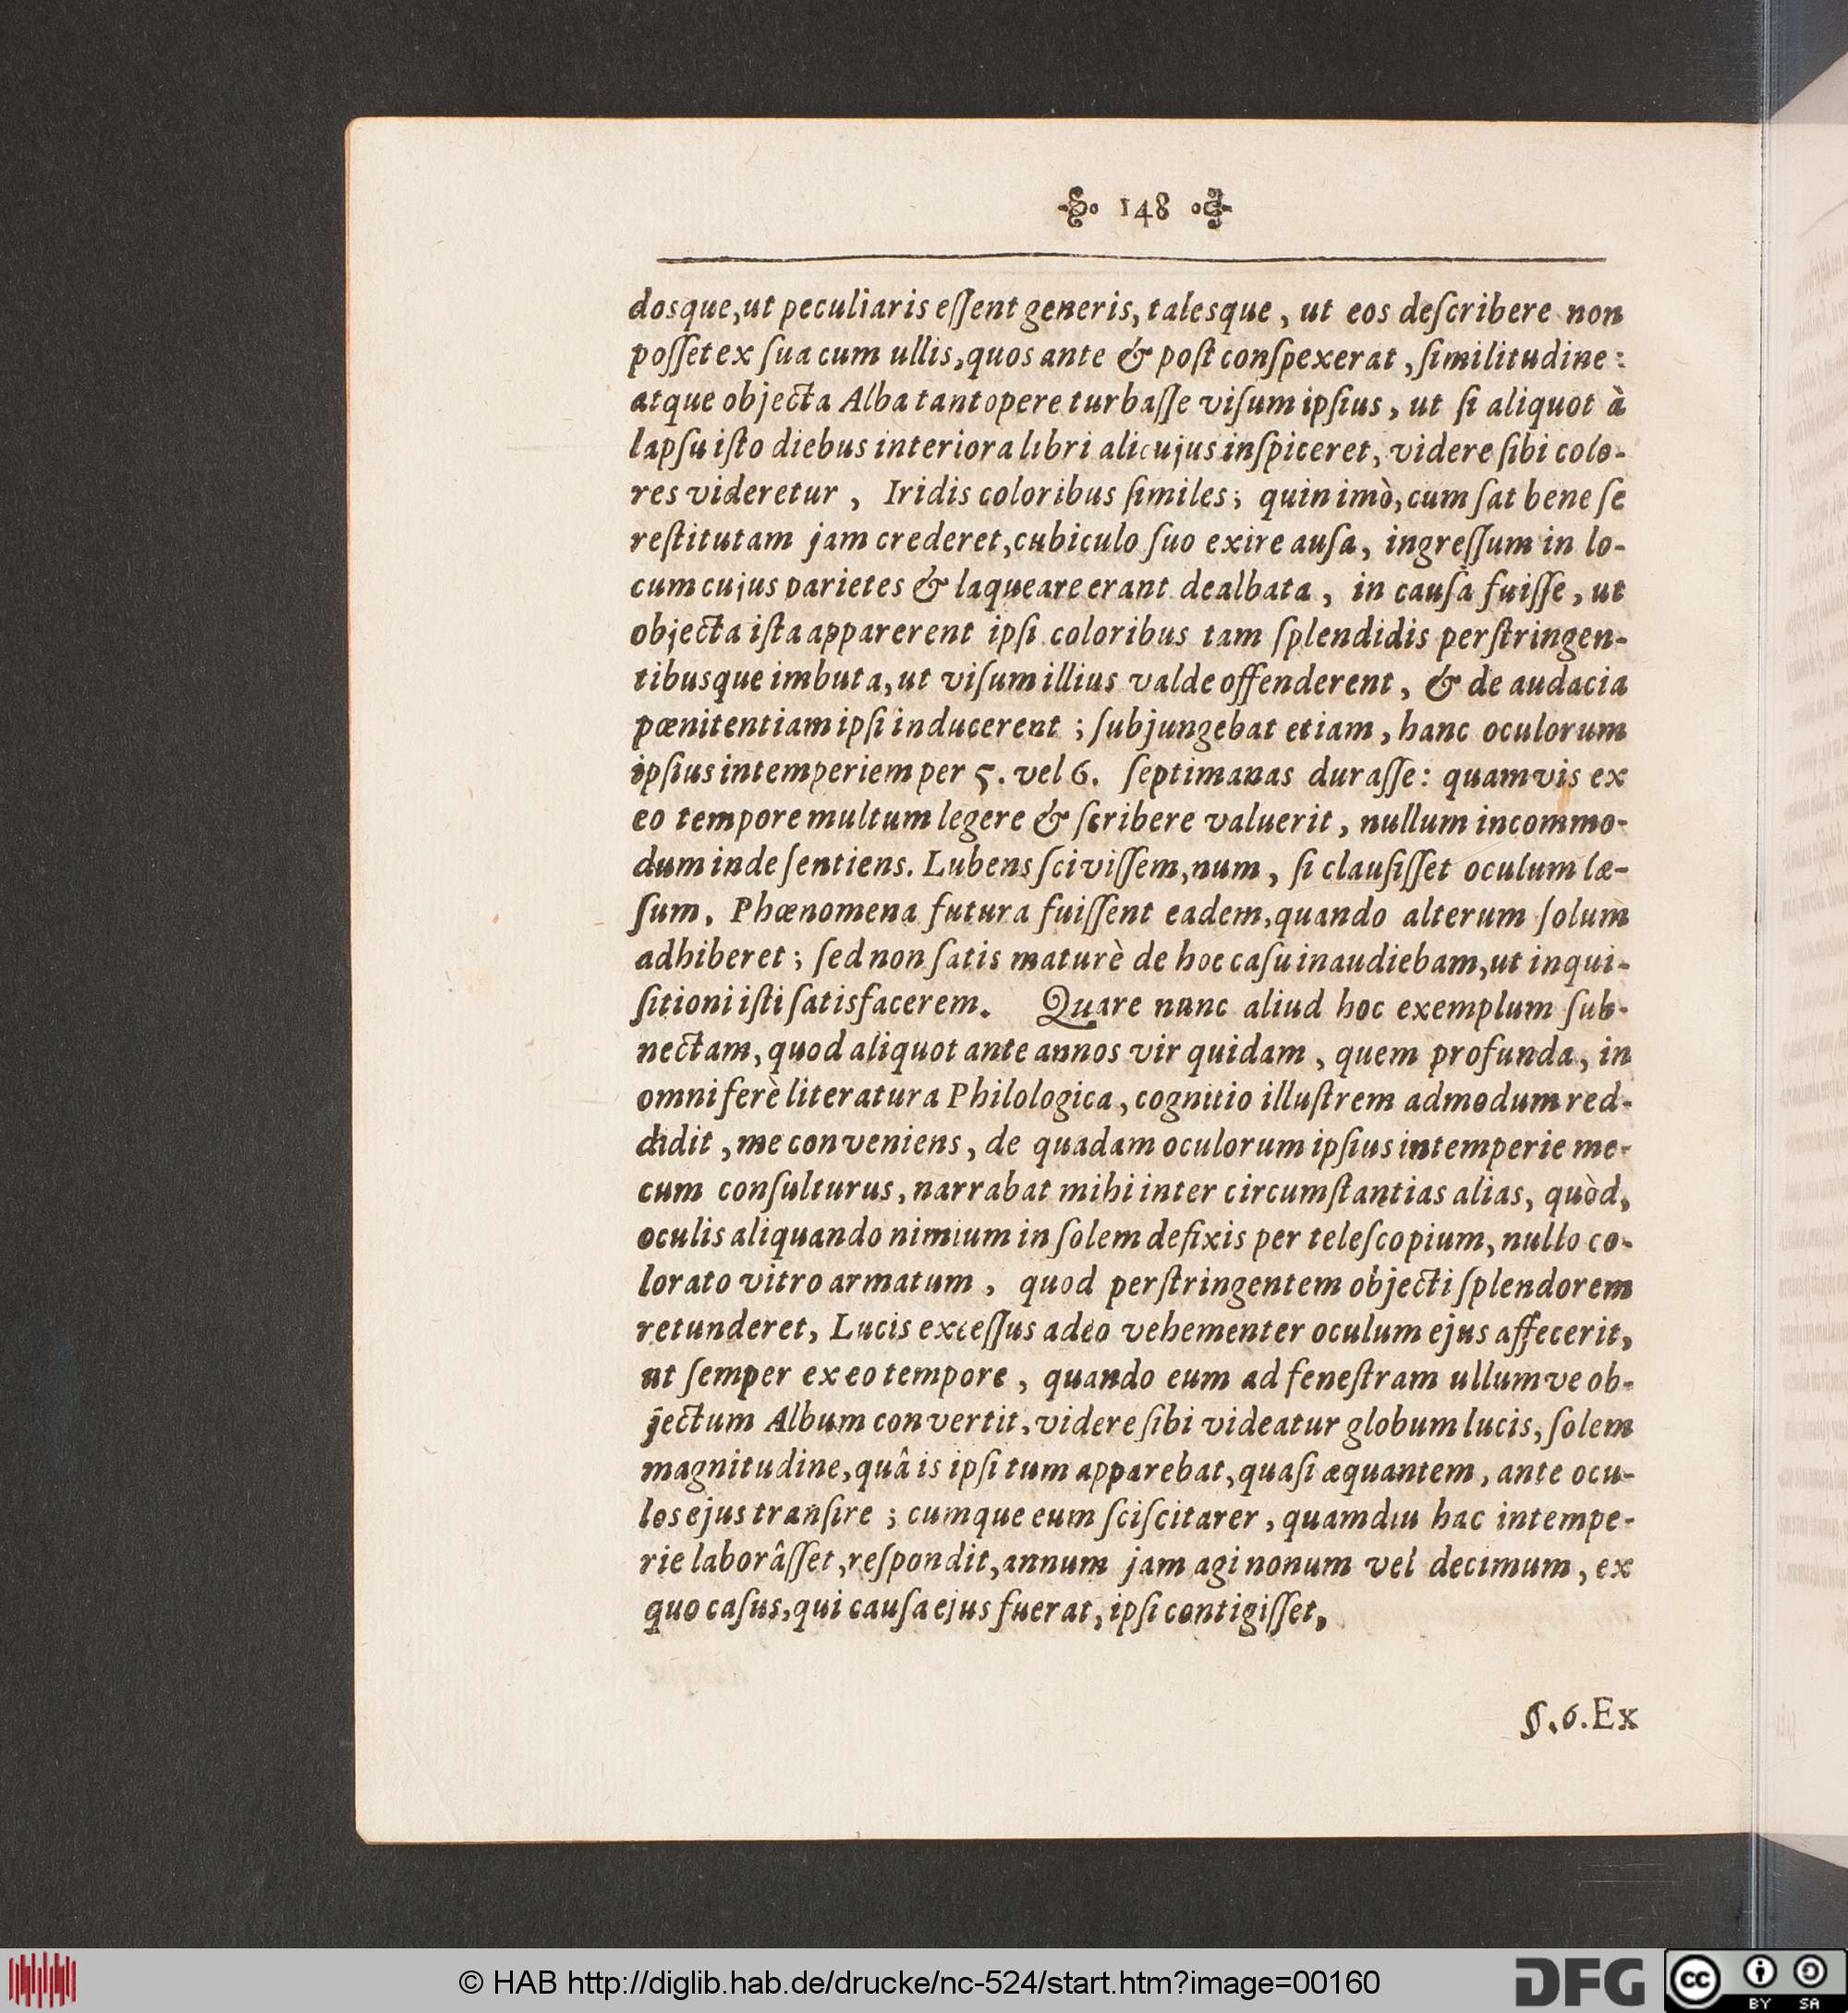 148
dosque, ut peculiaris eſſent generis, talesque, ut eos deſcribere non
poſſet ex ſua cum ullis, quos ante & poſt conſpexerat, ſimilitudine:
atque objecta Alba tantopere turbaſſe viſum ipſius, ut ſi aliquot à
lapſu iſto diebus interiora libri alicujus inſpiceret, videre ſibi colo-
res videretur, Iridis coloribus ſimiles; quin imò, cum ſat bene ſe
reſtitutam jam crederet, cubiculo ſuo exire auſa, ingreſſum in lo-
cum cujus parietes & laqueare erant dealbata, in cauſà fuiſſe, ut
objecta iſta apparerent ipſi coloribus tam ſplendidis perſtringen-
tibusque imbuta, ut viſum illius valde offenderent, & de audacia
pœnitentiam ipſi inducerent; ſubjungebat etiam, hanc oculorum
ipſius intemperiem per 5. vel 6. ſeptimanas duraſſe: quamvis ex
eo tempore multum legere & ſcribere valuerit, nullum incommo-
dum inde ſentiens. Lubens ſciviſſem, num, ſi clauſiſſet oculum læ-
ſum, Phœnomena futura fuiſſent eadem, quando alterum ſolum
adhiberet; ſed non ſatis maturè de hoc caſu inaudiebam, ut inqui-
ſitioni iſti ſatisfacerem. Quare nunc aliud hoc exemplum ſub-
nectam, quod aliquot ante annos vir quidam, quem profunda, in
omni ferè literatura Philologica, cognitio illuſtrem admodum red-
didit, me conveniens, de quadam oculorum ipſius intemperie me-
cum conſulturus, narrabat mihi inter circumſtantias alias, quòd,
oculis aliquando nimium in ſolem defixis per teleſcopium, nullo co-
lorato vitro armatum, quod perſtringentem objecti ſplendorem
retunderet, Lucis exceſſus adeo vehementer oculum ejus affecerit,
ut ſemper ex eo tempore, quando eum ad feneſtram ullumve ob-
jectum Album convertit, videre ſibi videatur globum lucis, ſolem
magnitudine, quâ is ipſi tum apparebat, quaſi æquantem, ante ocu-
los ejus tranſire; cumque eum ſciſcitarer, quamdiu hac intempe-
rie laborâſſet, reſpondit, annum jam agi nonum vel decimum, ex
quo caſus, qui cauſa ejus fuerat, ipſi contigiſſet,
§. 6. Ex
© HAB http://diglib.hab.de/drucke/nc-524/start.htm?image=00160
DFG
cc BY SA